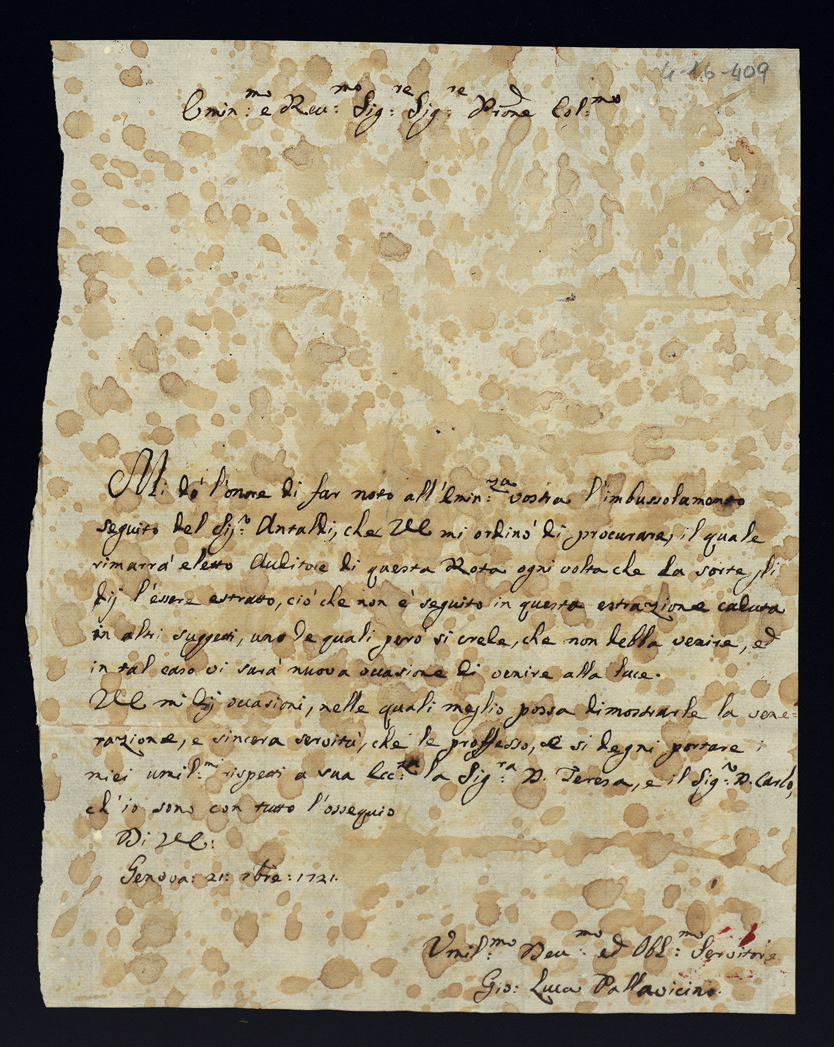 4-16-409
Emin:mo e Reu:mo Sig:re Sig:re Prōne Col:mo
Mi dò l'onore di far noto all'Emin:za vostra l'imbussolamento
seguito del Sig:r Antaldi, che VE mi ordinò di procurare, il quale
rimarrà eletto Auditore di questa Rota ogni volta che la sorte gli
dij l'essere estratto, ciò che non è seguito in questa estrazione caduta
in altri suggetti, uno de quali però si crede, che non debba venire, ed
in tal caso vi sarà nuova occasione di venire alla luce.
VE mi dij occasioni, nelle quali meglio possa dimostrarle la vene=
razione, e sincera servitù, che le professo, e si degni portare i
miei umil:mi rispetti a sua Ecc:za la Sig:ra D. Teresa, e il Sig:r D. Carlo,
ch'io sono con tutto l'ossequio
Di VE:
Genova: 21: 7bre: 1721.
Vmil:mo Deu:mo ed Obl:mo Servitore
Gio: Luca Pallavicino.